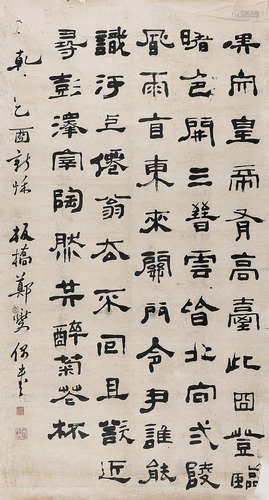 皇帝有高臺此日登臨
睹色開三晉雲皆北向弍陵
風雨自東來關門令尹誰能
識河上僊翁去不回且欲近
尋彭澤宰陶然共醉菊花杯
乾 乙酉新秋 板橋鄭燮